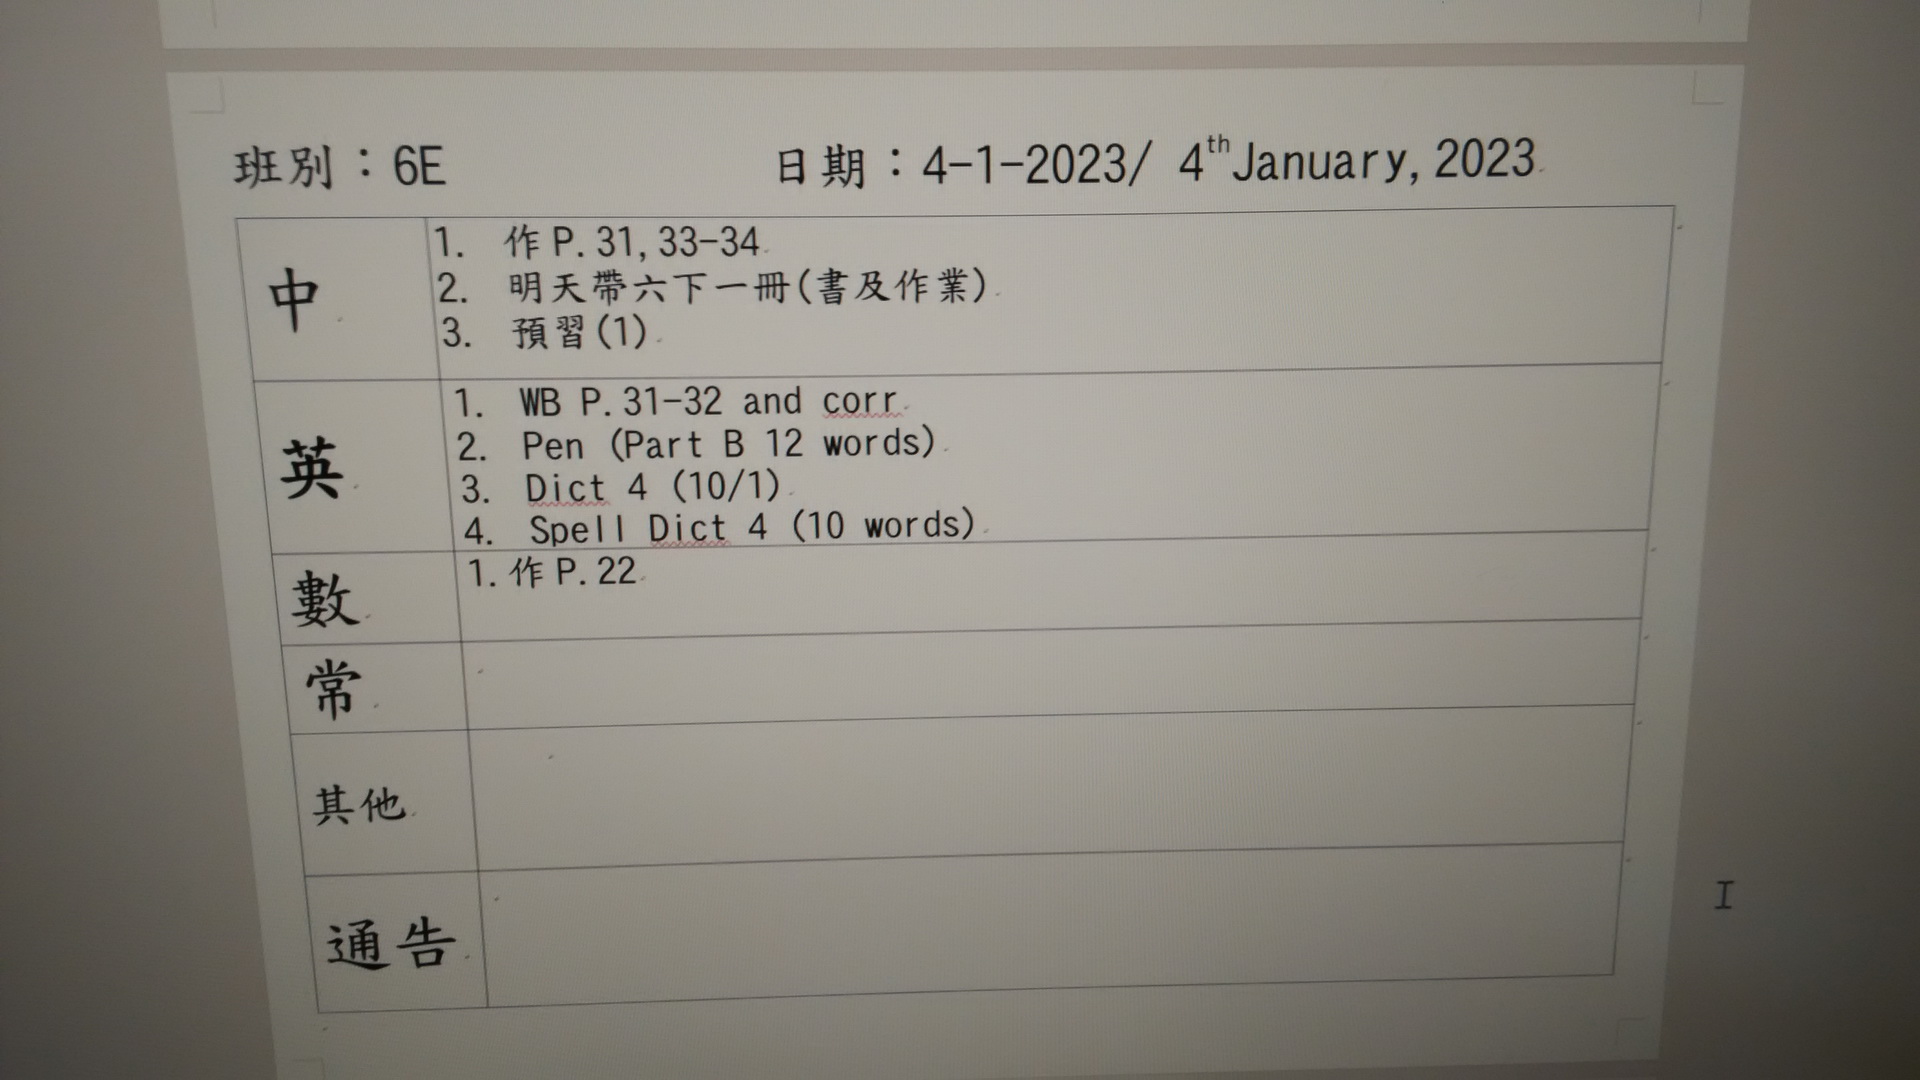 班別：6E 日期：4-1-2023/ 4th January, 2023
中
1. 作 P. 31, 33-34
2. 明天帶六下一冊(書及作業)
3. 預習(1)
英
1. WB P. 31-32 and corr
2. Pen (Part B 12 words)
3. Dict 4 (10/1)
4. Spell Dict 4 (10 words)
數
1. 作 P. 22
常
其他
通告